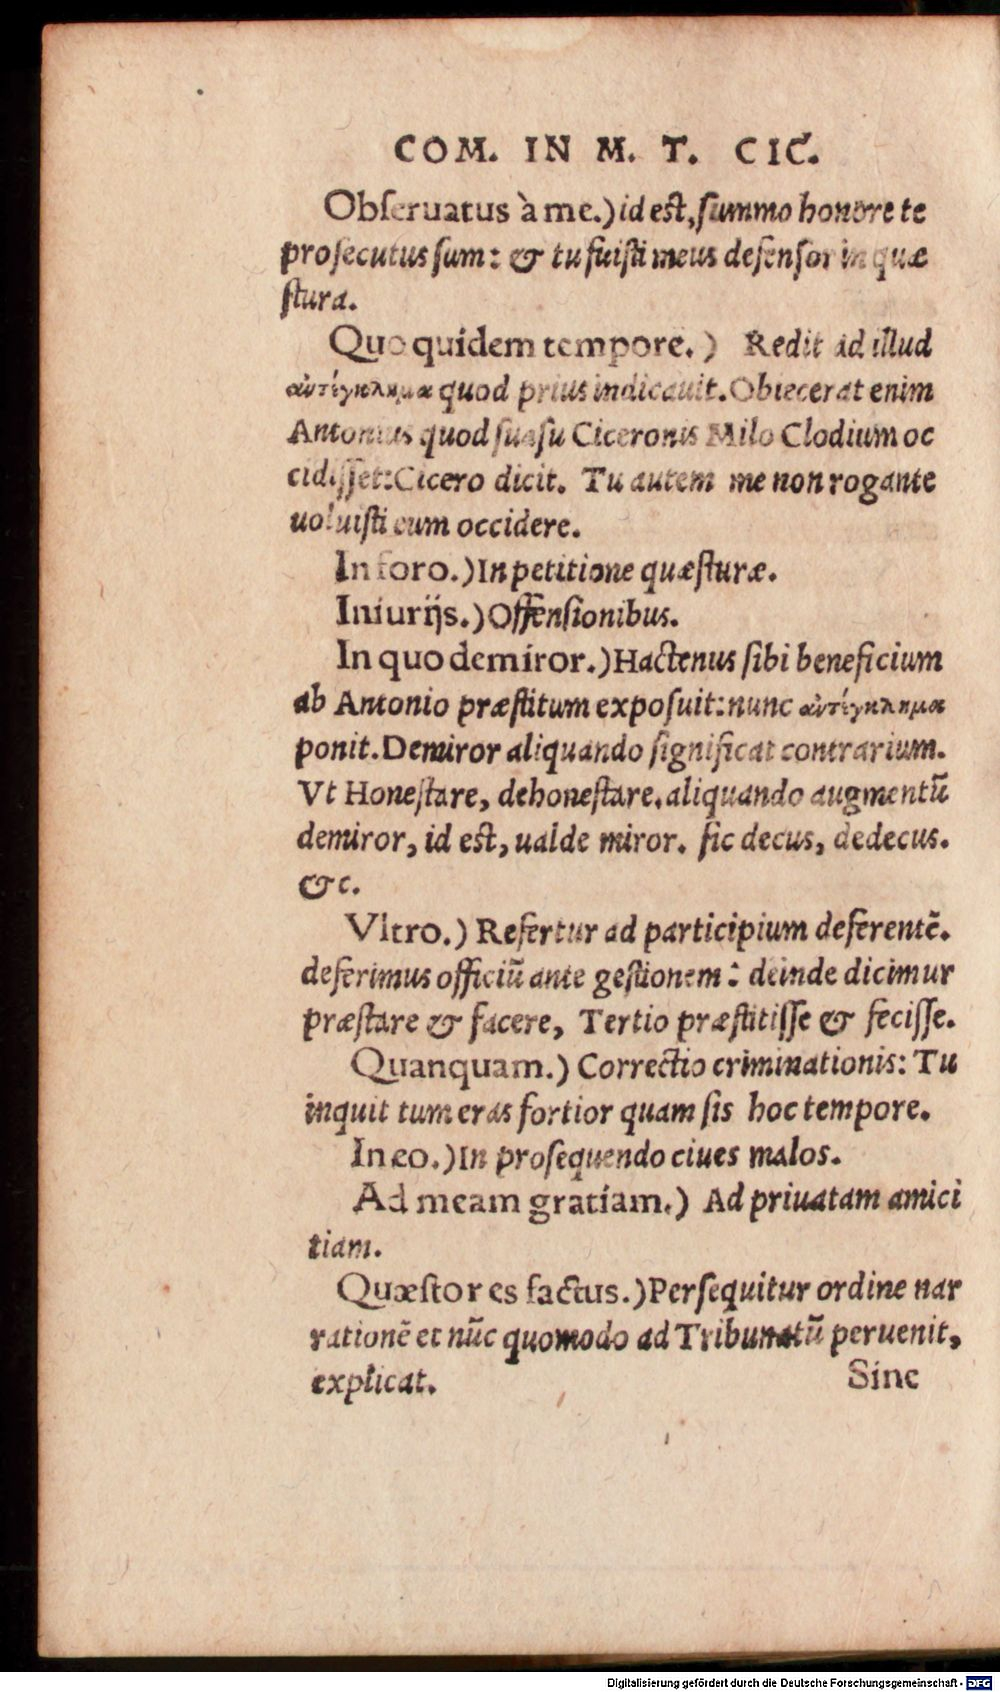 COM. IN M. T. CIC.
Obſeruatus à me.) id eſt, ſummo honore te
proſecutus ſum: & tu fuiſti meus defenſor in quæ
ſtura.
Quo quidem tempore.) Redit ad illud
αὐτίγκλημα quod prius indicauit. Obiecerat enim
Antonius quod ſuaſu Ciceronis Milo Clodium oc
cidiſſet: Cicero dicit. Tu autem me non rogante
uoluiſti eum occidere.
In foro.) In petitione quæſturæ.
Iniurijs.) Offenſionibus.
In quo demiror.) Hactenus ſibi beneficium
ab Antonio præſtitum expoſuit: nunc αὐτίγκλημα
ponit. Demiror aliquando ſignificat contrarium.
Vt Honeſtare, dehoneſtare. aliquando augmentū
demiror, id eſt, ualde miror. ſic decus, dedecus.
&c.
Vltro.) Refertur ad participium deferentē.
deferimus officiū ante geſtionem: deinde dicimur
præſtare & facere, Tertio præſtitiſſe & feciſſe.
Quanquam.) Correctio criminationis: Tu
inquit tum eras fortior quam ſis hoc tempore.
In eo.) In proſequendo ciues malos.
Ad meam gratiam.) Ad priuatam amici
tiam.
Quæſtor es factus.) Perſequitur ordine nar
rationē et nūc quomodo ad Tribunatū peruenit,
explicat. Sine
Digitalisierung gefördert durch die Deutsche Forschungsgemeinschaft - DFG